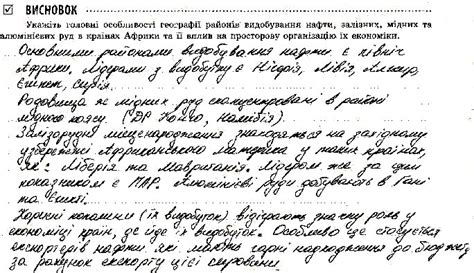 ☑ ВИСНОВОК
Укажіть головні особливості географії районів видобування нафти, залізних, мідних та
алюмінієвих руд в країнах Африки та її вплив на просторову організацію їх економіки.
Основними районами видобування нафти є північ
Африки. Лідерами з видобутку є Нігерія, Лівія, Алжир,
Єгипет,
Родовища же мідних руд сконцентровані в районі
мідного поясу. (ДР Конго, Намібія).
Залізорудні місценародження знаходяться на західному
узбережжі Африканського материка у таких країнах,
як: Ліберія та Мавританія. Лідером же за цим
показником є ПАР. Алюмінієві руди добувають в Гані
та Єгипті.
Корисні копалини (їх видобуток) відіграють значну роль у
економіці країн, де йде їх видобуток. Особливо це стосується
експортерів нафти, які мають гарні надходження до бюджету
за рахунок експорту цієї сировини.